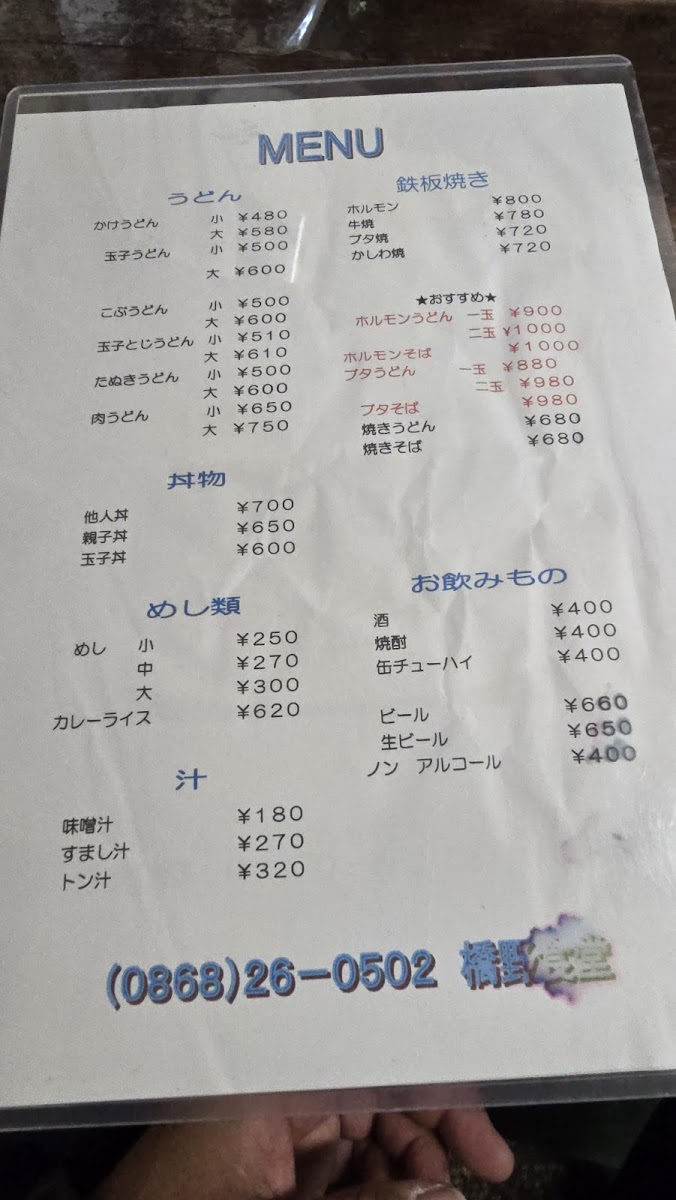 MENU
うどん
かけうどん 小 ¥480
大 ¥580
玉子うどん 小 ¥500
大 ¥600
こぶうどん 小 ¥500
大 ¥600
玉子とじうどん 小 ¥510
大 ¥610
たぬきうどん 小 ¥500
大 ¥600
肉うどん 小 ¥650
大 ¥750
丼物
他人丼 ¥700
親子丼 ¥650
玉子丼 ¥600
めし類
めし 小 ¥250
中 ¥270
大 ¥300
カレーライス ¥620
汁
味噌汁 ¥180
すまし汁 ¥270
トン汁 ¥320
鉄板焼き
ホルモン ¥800
牛焼 ¥780
ブタ焼 ¥720
かしわ焼 ¥720
★おすすめ★
ホルモンうどん 一玉 ¥900
二玉 ¥1000
ホルモンそば ¥1000
ブタうどん 一玉 ¥880
二玉 ¥980
ブタそば ¥980
焼きうどん ¥680
焼きそば ¥680
お飲みもの
酒 ¥400
焼酎 ¥400
缶チューハイ ¥400
ビール ¥660
生ビール ¥650
ノン アルコール ¥400
(0868)26-0502 橋野食堂